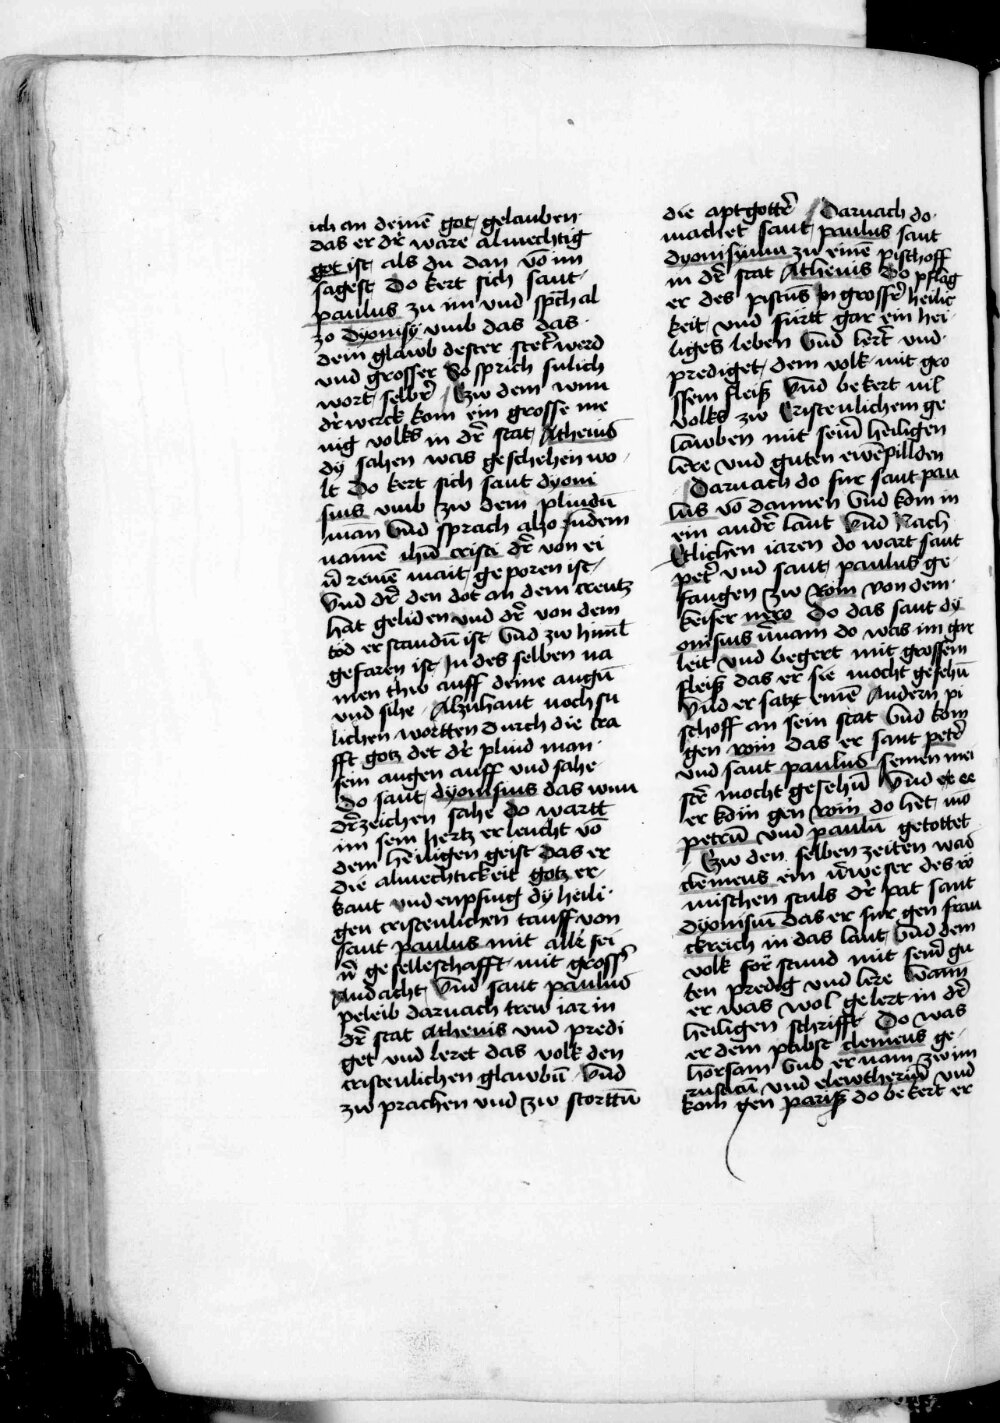 ich an deinē got gelauben
das er dr̄ ware almechtig
got ist als du dan vō im
sagest Do kert sich sant
paulus zu im vnd sp̄ch al
zo dyonisy vmb das das
dem glawb dester stet̄ werd
vnd grosser So sprich sulich
wort selber̄ Czw dem wun
dr̄werck kom ein grosse me
nig volks in dr̄ stat Athenis
dy sahen was geschehen wo
lt Do kert sich sant dyoni
sius vmb zw dem plindn̄
man Vnd sprach also Indem
namē ihū cristi dr̄ von ei
n̄ reinē mait geporen ist
Vnd dr̄ den dot an dem creutz
hat geliden vnd dr̄ von dem
tod erstandn̄ ist Vnd zw himl̄
gefaren ist In des selben na
men thw auff deine augn̄
vnd sihe Alzuhant noch su
lichen wortten durch die cra
fft gotz det dr̄ plind man
sein augen auff vnd sahe
Do sant dyonisius das wun
dr̄zeichen sahe do wartt
im sein hertz erleucht vō
dem heiligen geist das er
die almechtickeit gotz er
kant vnd enpfing dy heili
gen cristenlichen tauff von
sant paulus mit all̄ sei
n̄ geselleschafft mit gross̄
Andacht Vnd sant paulus
peleib darnach trew iar in
dr̄ stat Athenis vnd predi
get vnd leret das volk den
cristenlichen glawbn̄ Vnd
zw prachen vnd zw storttn̄
die aptgotter̄ Darnach do
machet sant paulus sant
dyonisyum zu einē pischoff
in dr̄ stat Athenis Do pflag
er des pistūs In grosser̄ heilic
keit vnd fürtt gar ein hei
liges leben Vnd lert̄ vnd
prediget dem volk mit gro
ssem fleiß Vnd bekert vil
volks zw Cristenlichem ge
lawben mit sein̄ heiligen
lere vnd guten ewēpillden
Darnach do fur sant pau
lus vō dannen Vnd kom in
ein andr̄ lant Vnd Nach
Etlichen iaren do wart sant
pet̄ vnd sant paulus ge
fangen zw Rom von dem
keiser nero Do das sant dy
onisius v̄nam do was im gar
leit vnd begert mit grossem
fleiß das er sie mocht gesehn̄
Vnd er satzt einē Andern pi
schoff an sein stat Vnd kom
gen rom das er sant peter̄
vnd sant paulus seinen mei
ster̄ mocht gesehn̄ Vnd ee ee
er kom gen rom do het mā
petrū vnd paulū getottet
Czw den selben zeiten was
clemens ein v̄weser des rō
mischen stuls dr̄ pat sant
dyonisiū das er fur gen fran
ckreich in das lant Vnd dem
volk for stund mit sein̄ gu
ten predig vnd lere Wann
er was wol gelert in dr̄
heiligen schrifft Do was
er dem pabst clemens ge
horsam Vnd er nam zw im
rusticū vnd elewtheriū vnd
kom gen pariß do bekert er